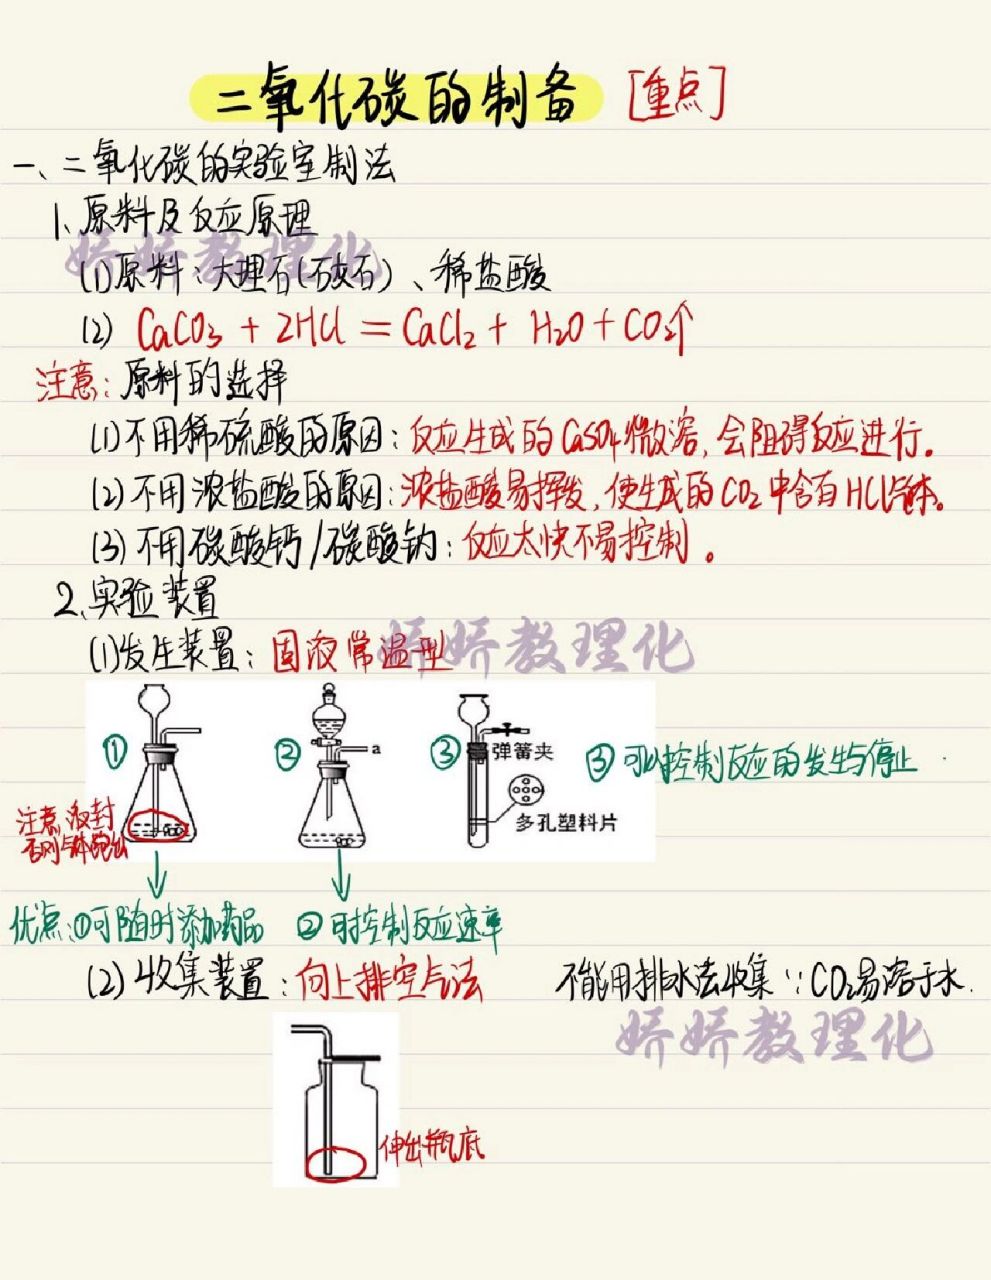 二氧化碳的制备 [重点]
一、二氧化碳的实验室制法
1、原料及反应原理
娇娇教理化
(1)原料:大理石(石灰石)、稀盐酸
(2) CaCO3 + 2HCl = CaCl2 + H2O + CO2↑
注意:原料的选择
(1)不用稀硫酸的原因:反应生成的CaSO4微溶,会阻碍反应进行。
(2)不用浓盐酸的原因:浓盐酸易挥发,使生成的CO2中含有HCl气体。
(3)不用碳酸钙/碳酸钠:反应太快不易控制。
2、实验装置
(1)发生装置:固液常温型
娇娇教理化
① ② a ③ 弹簧夹 ③可以控制反应的发生与停止
多孔塑料片
注意液封
否则气体跑出
优点:①可随时添加药品 ②可控制反应速率
(2)收集装置:向上排空气法 不能用排水法收集∵CO2易溶于水.
娇娇教理化
伸出瓶底